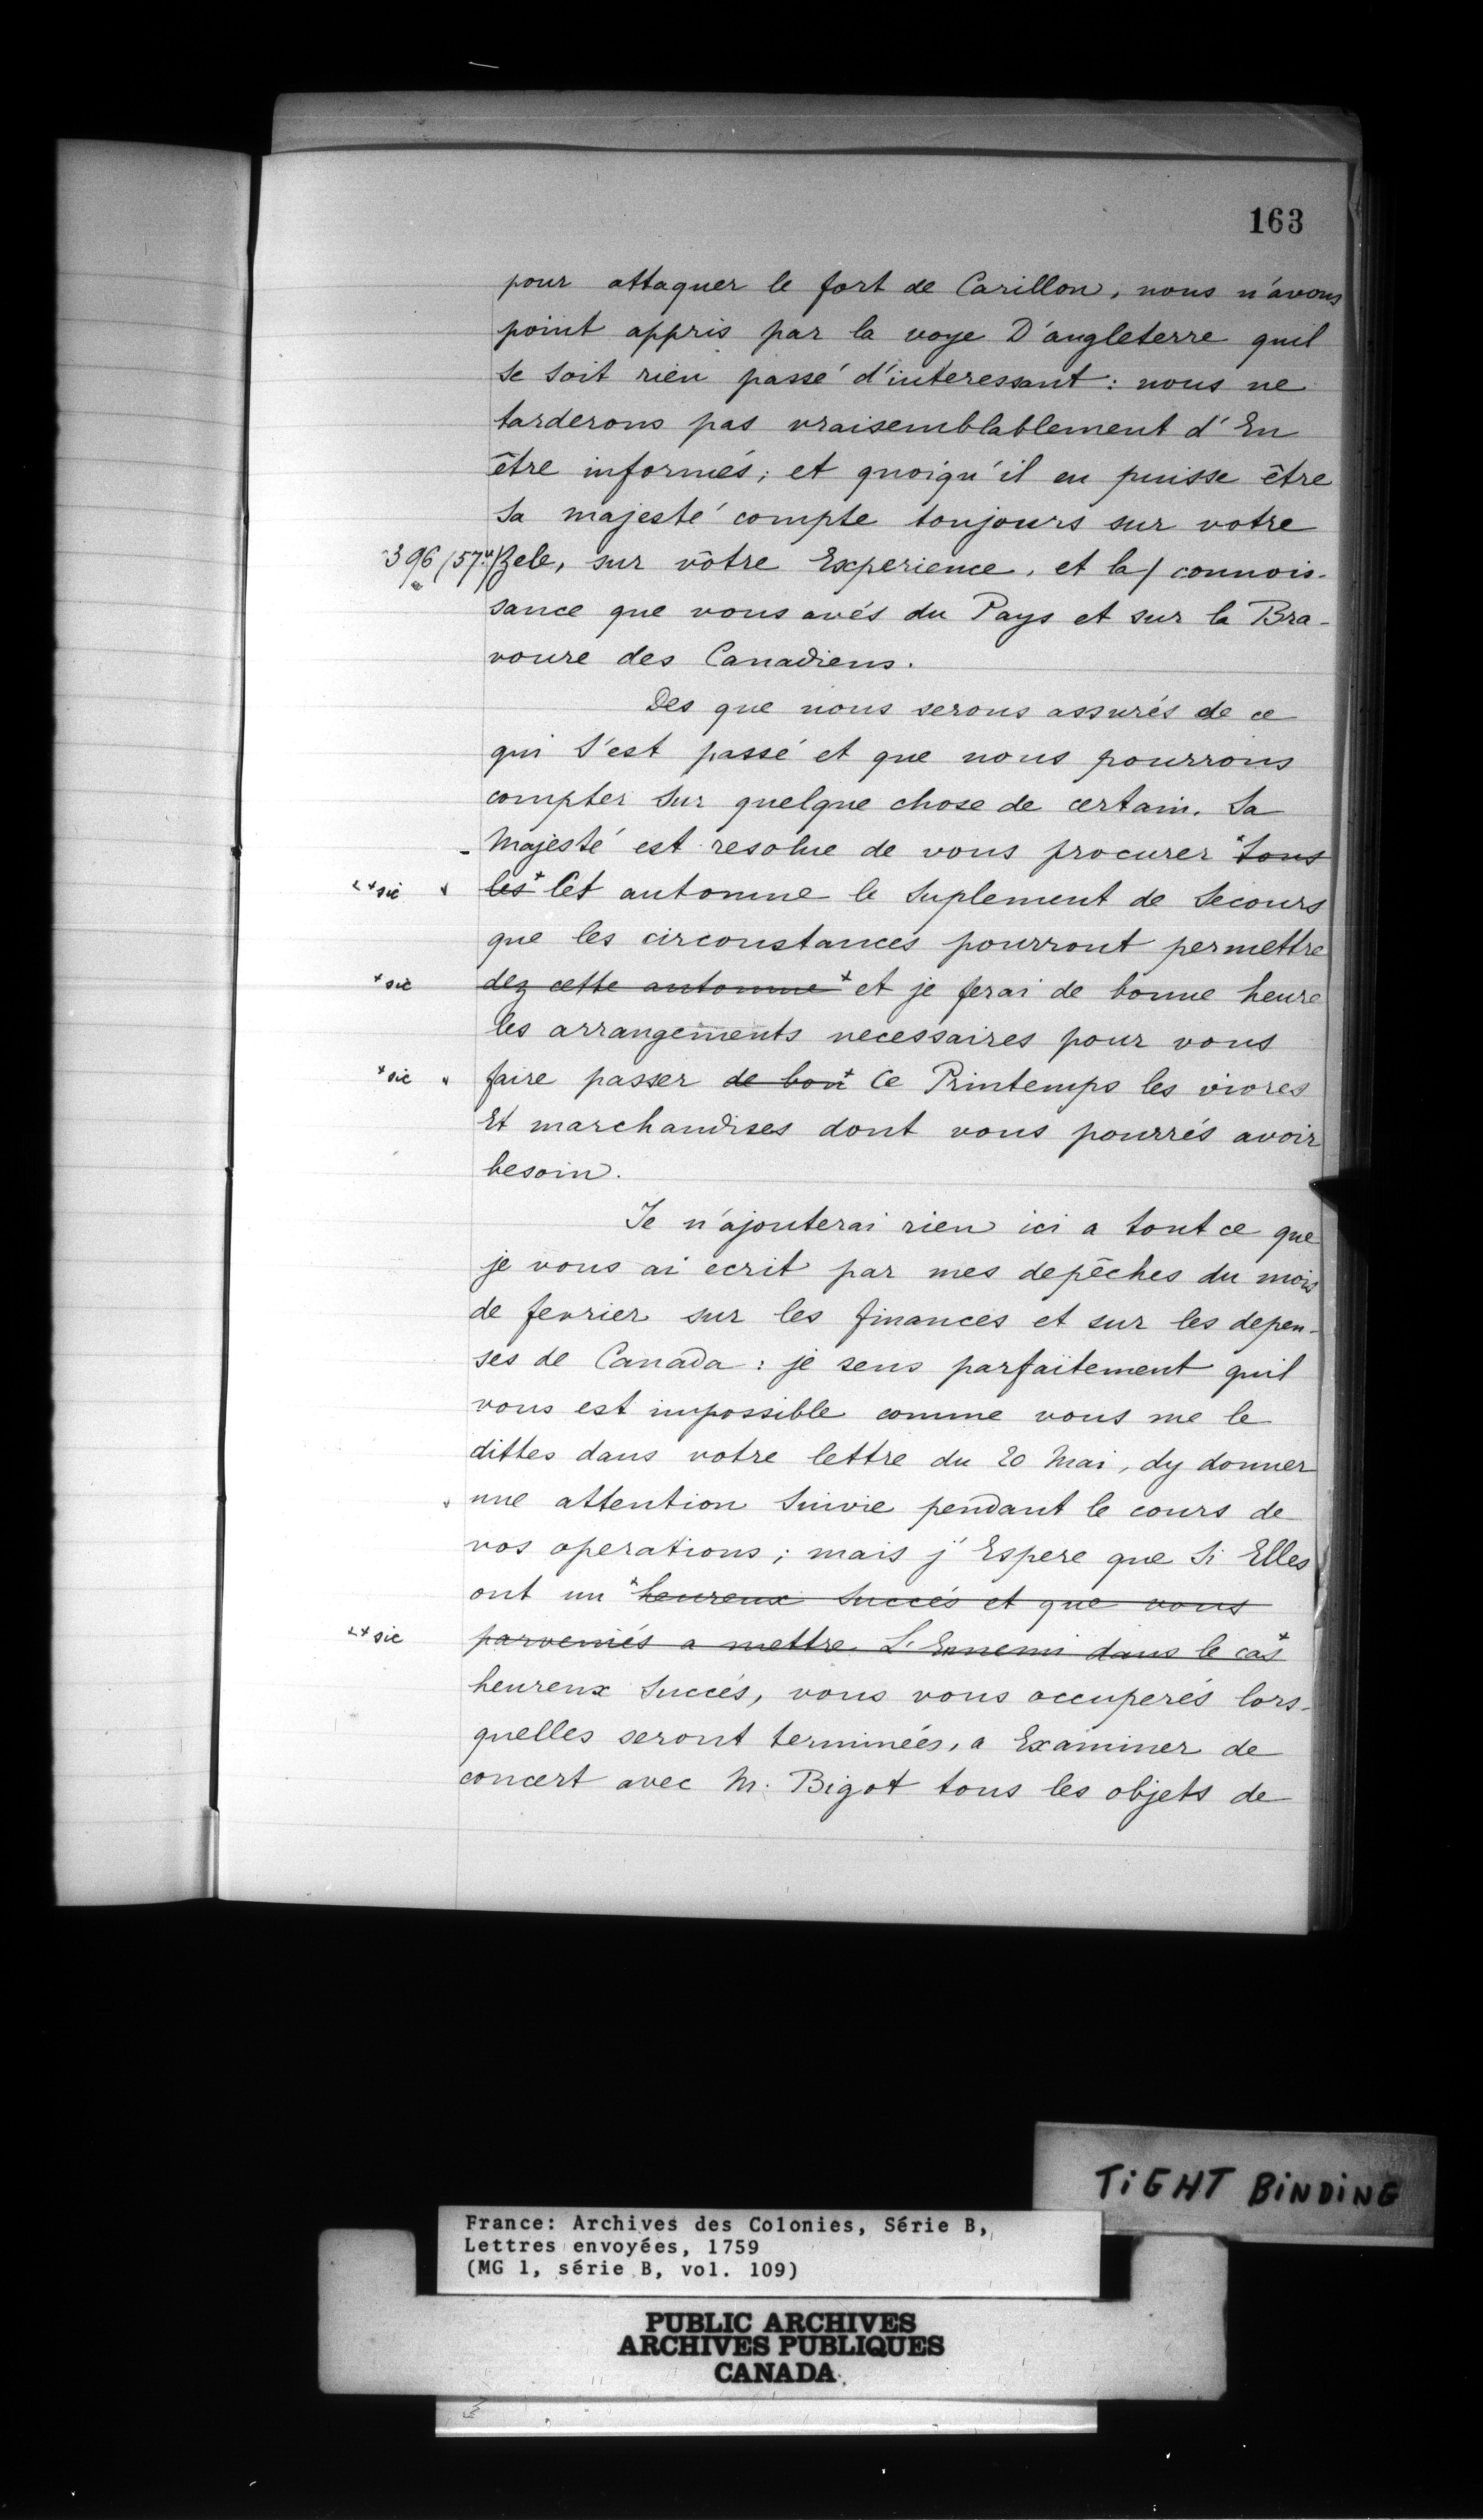 163
pour attaquer le fort de Carillon, nous n'avons
point appris par la voye D'angleterre quil
se soit rien passé d'interessant : nous ne
tarderons pas vraisemblablement d'En
être informés; et quoiqu'il en puisse être
Sa majesté compte toujours sur votre
396 (57.) Zele, sur vôtre Experience, et la/ connois-
sance que vous avés du Pays et sur la Bra-
voure des Canadiens.
Des que nous serons assurés de ce
qui S'est passé et que nous pourrons
compter Sur quelque chose de certain. Sa
Majesté est resolue de vous procurer *tous
+*sic les* Cet automne le Suplement de Secours
que les circonstances pourront permettre
*sic dez cette automne* et je ferai de bonne heure
les arrangements necessaires pour vous
*sic faire passer de bon* Ce Printemps les vivres
Et marchandises dont vous pourrés avoir
besoin.
Je n'ajouterai rien ici a tout ce que
je vous ai ecrit par mes depêches du mois
de fevrier sur les finances et sur les depen-
ses de Canada : je sens parfaitement quil
vous est impossible comme vous me le
dittes dans votre lettre du 20 Mai, dy donner
une attention Suivie pendant le cours de
vos operations; mais j'Espere que Si Elles
ont un *heureux Succés et que vous
+*sic parveniés a mettre L'Ennemi dans le cas*
heureux Succés, vous vous occuperés lors-
quelles seront terminées, a Examiner de
concert avec M. Bigot tous les objets de
TiGHT BiNDiNG
France: Archives des Colonies, Série B,
Lettres envoyées, 1759
(MG 1, série B, vol. 109)
PUBLIC ARCHIVES
ARCHIVES PUBLIQUES
CANADA